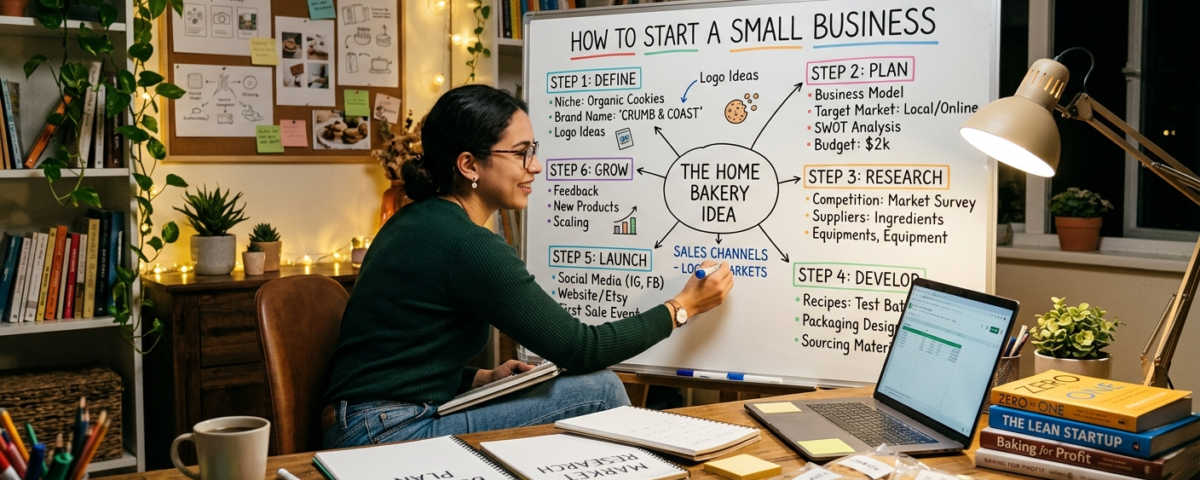 HOW TO START A SMALL BUSINESS
STEP 1: DEFINE
Niche: Organic Cookies
Brand Name: "CRUMB & COAST"
Logo Ideas
Logo Ideas
STEP 2: PLAN
Business Model
Target Market: Local/Online
SWOT Analysis
Budget: $2k
STEP 6: GROW
Feedback
New Products
Scaling
THE HOME
BAKERY
IDEA
STEP 3: RESEARCH
Competition: Market Survey
Suppliers: Ingredients
Equipments, Equipment
STEP 5: LAUNCH
Social Media (IG, FB)
Website/Etsy
First Sale Event
SALES CHANNELS
STEP 4: DEVELOP
Recipes: Test
Packaging
Sourcing
PLAN
MARKET
RESEARCH
ZERO TO ONE
ZERO TO ONE
THE LEAN STARTUP
Baking for Profit
BAKING FOR PROFIT